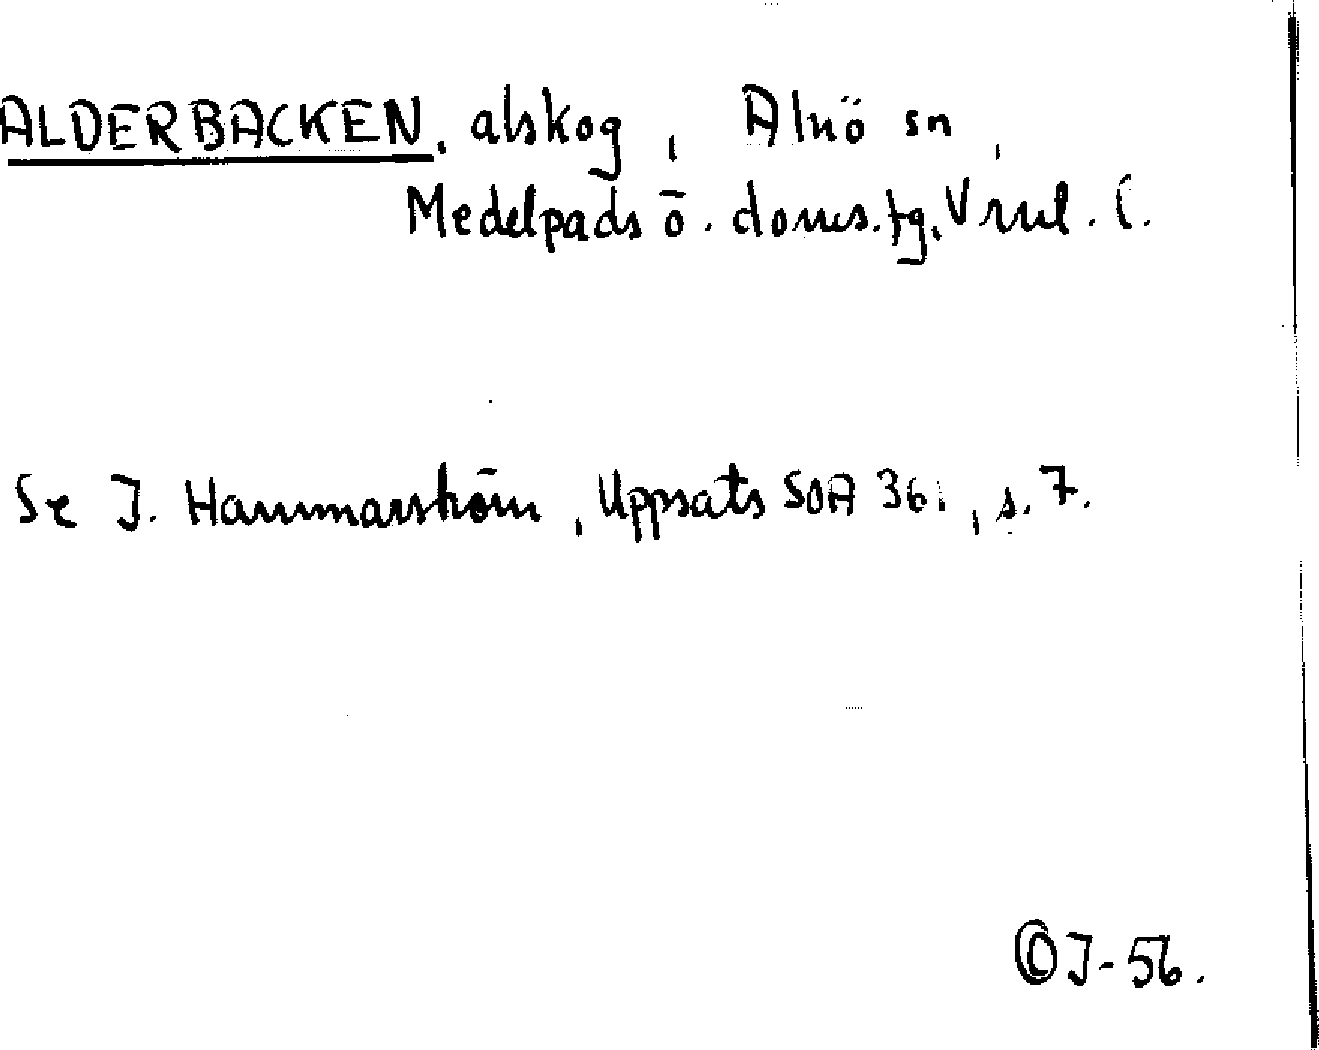 ALDERBACKEN, alskog, Alnö sn,
Medelpads ö. doms.tg, Vrnl. l.
Se J. Hammarström, Uppsats SOA 361, s. 7.
ÖJ-56.